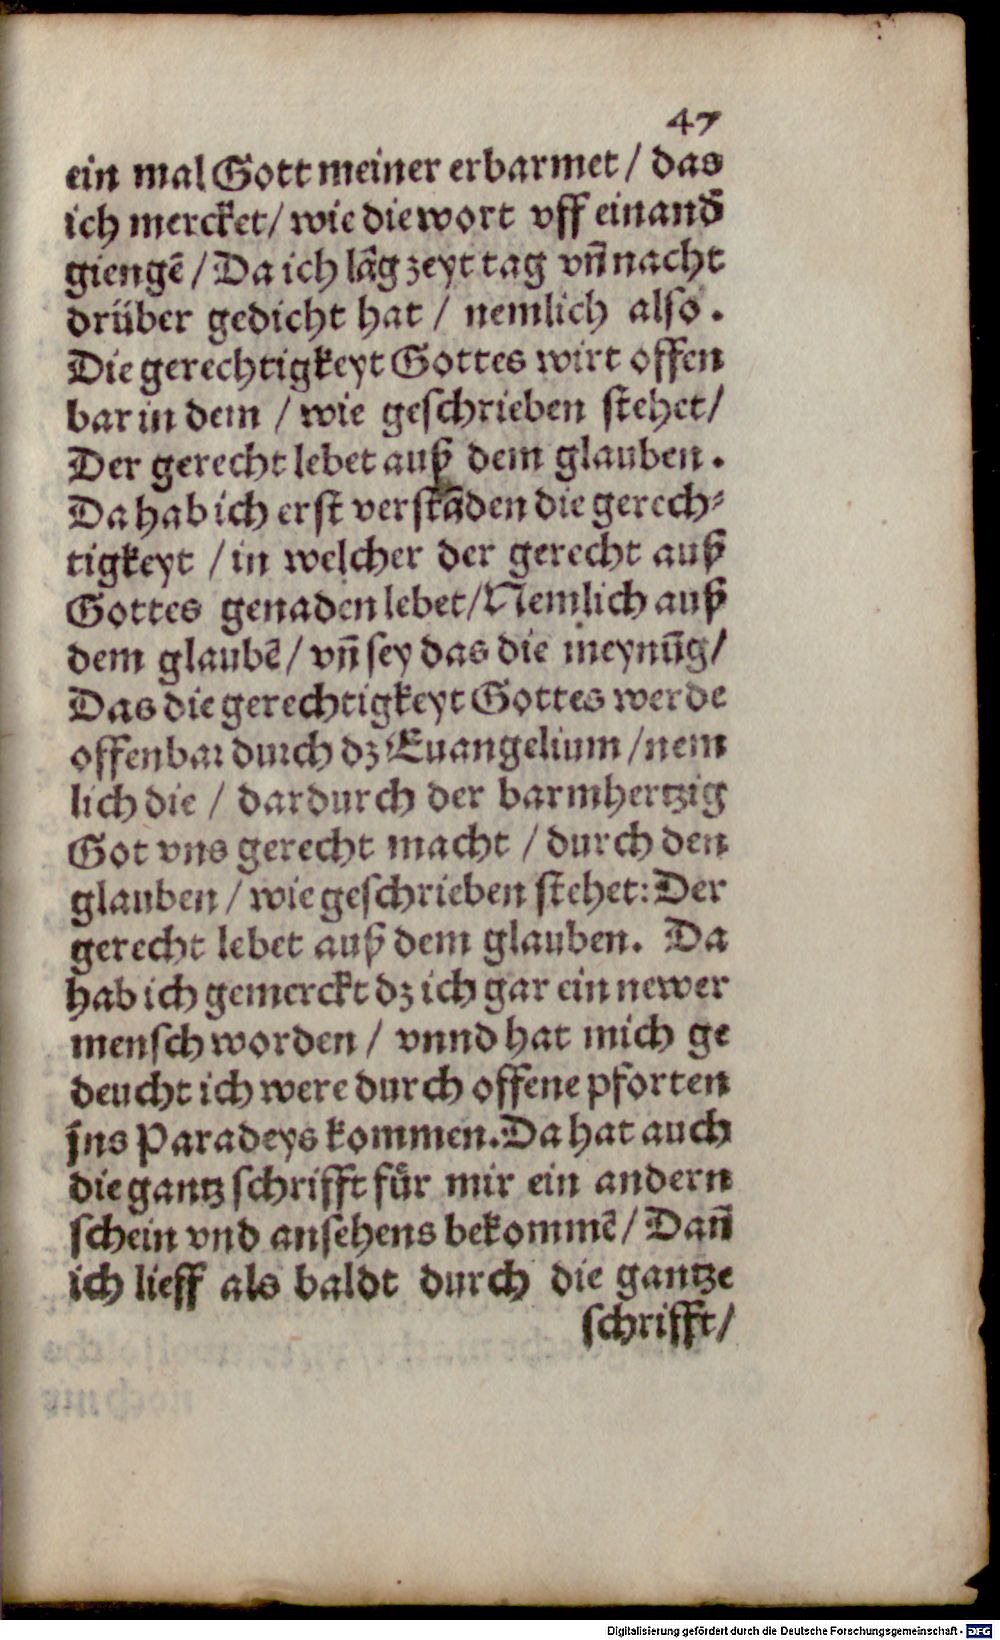 47
ein mal Gott meiner erbarmet / das
ich mercket / wie die wort vff einand̄
giengē / Da ich lāg zeyt tag vn̄ nacht
drüber gedicht hat / nemlich also.
Die gerechtigkeyt Gottes wirt offen
bar in dem / wie geschrieben stehet /
Der gerecht lebet auß dem glauben.
Da hab ich erst verstāden die gerech⸗
tigkeyt / in welcher der gerecht auß
Gottes genaden lebet / Nemlich auß
dem glaubē / vn̄ sey das die meynūg /
Das die gerechtigkeyt Gottes werde
offenbar durch dz Euangelium / nem
lich die / dardurch der barmhertzig
Got vns gerecht macht / durch den
glauben / wie geschrieben stehet: Der
gerecht lebet auß dem glauben. Da
hab ich gemerckt dz ich gar ein newer
mensch worden / vnnd hat mich ge
deucht ich were durch offene pforten
ins Paradeys kommen. Da hat auch
die gantz schrifft fůr mir ein andern
schein vnd ansehens bekommē / Dan̄
ich lieff als baldt durch die gantze
schrifft /
Digitalisierung gefördert durch die Deutsche Forschungsgemeinschaft - DFG